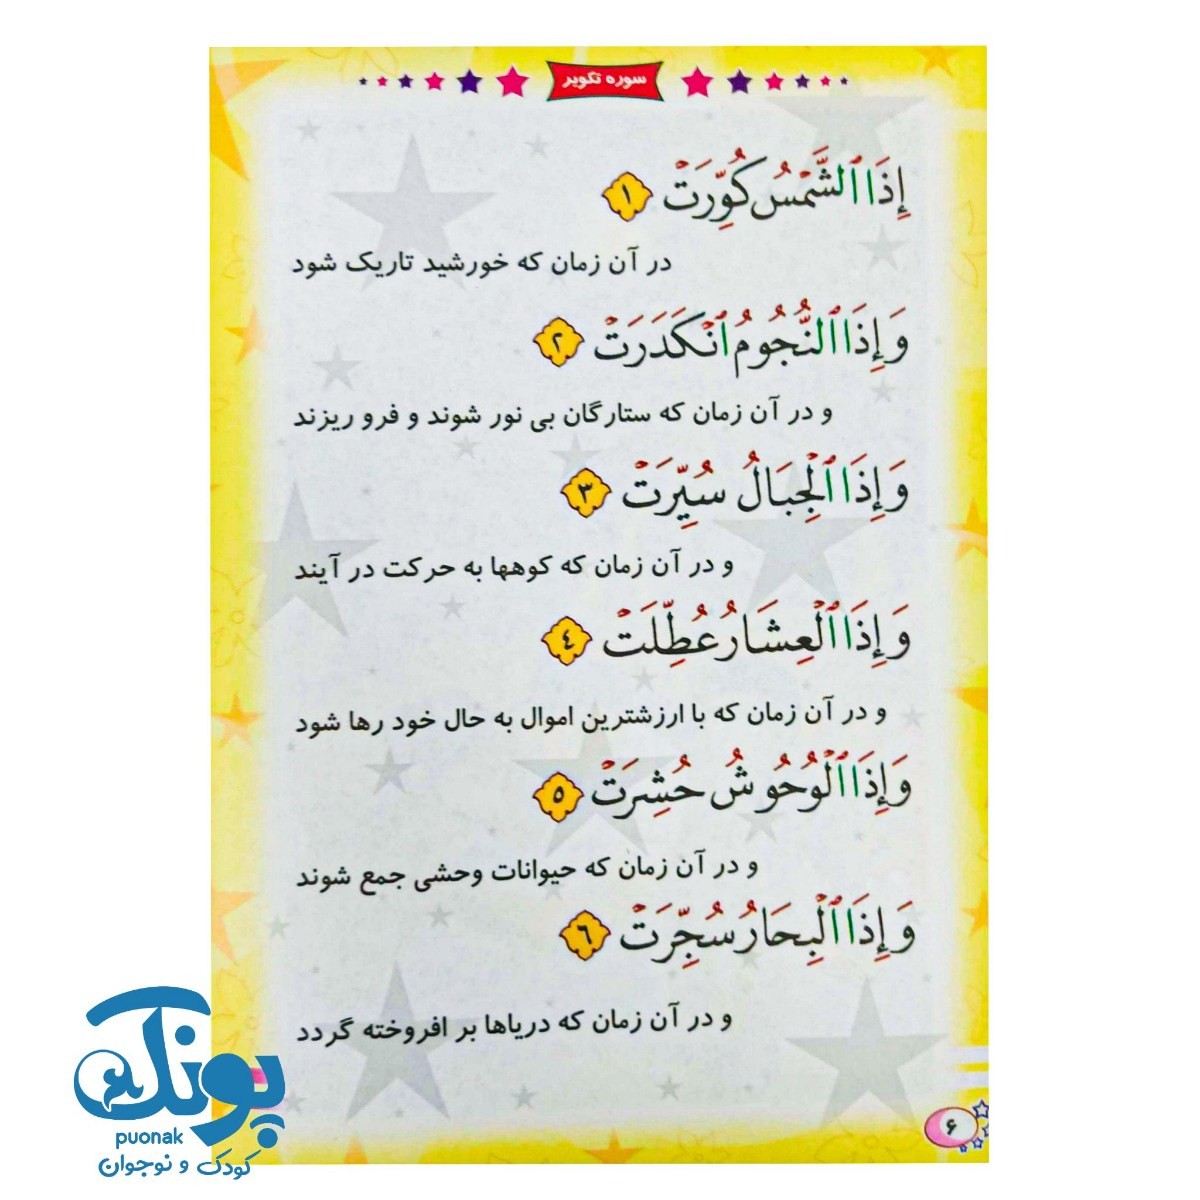 سوره تکویر
إِذَا ٱلشَّمْسُ كُوِّرَتْ ١
در آن زمان که خورشید تاریک شود
وَإِذَا ٱلنُّجُومُ ٱنْكَدَرَتْ ٢
و در آن زمان که ستارگان بی نور شوند و فرو ریزند
وَإِذَا ٱلْجِبَالُ سُيِّرَتْ ٣
و در آن زمان که کوهها به حرکت در آیند
وَإِذَا ٱلْعِشَارُ عُطِّلَتْ ٤
و در آن زمان که با ارزشترین اموال به حال خود رها شود
وَإِذَا ٱلْوُحُوشُ حُشِرَتْ ٥
و در آن زمان که حیوانات وحشی جمع شوند
وَإِذَا ٱلْبِحَارُ سُجِّرَتْ ٦
و در آن زمان که دریاها بر افروخته گردد
۶
پونک
puonak
کودک و نوجوان